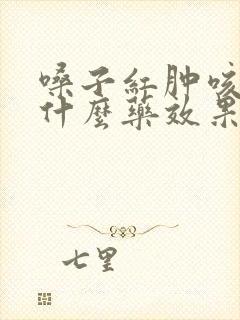 嗓子红肿咳
什麼药效果
七里